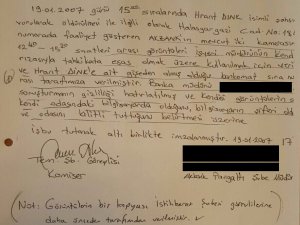 19.01.2007 günü 15:00 sıralarında Hrant DINK isimli şahsın
vurularak öldürülmesi ile ilgili olarak Halaskargazi Cad. No:181
numarada faaliyet gösteren AKBANK'ın mevcut iki kamerası
12:40 - 15:30 saatleri arası görüntüleri işyeri müdürünün kendi
rızasıyla tahkikata esas olmak üzere kullanılmak için verildi
ve Hrant DINK'e ait gişeden almış olduğu bankamat sıra no
su tarafımıza verilmiştir. Banka müdürü
soruşturmanın gizliliği hatırlatılmış ve kendisi görüntülerin
kendi odasındaki bilgisayarda olduğunu, bilgisayarın şifreli
ve odasını kilitli tuttuğunu belirtmesi üzerine
İşbu tutanak altı birlikte imzalanmıştır. 19.01.2007 17
Tem Şb Görevlisi
Komiser
Akbank Pangaltı Şube Müdür
(Not: Görüntülerin bir kopyası İstihbarat Şubesi görevlilerine
daha önceden tarafımdan verilmiştir.)